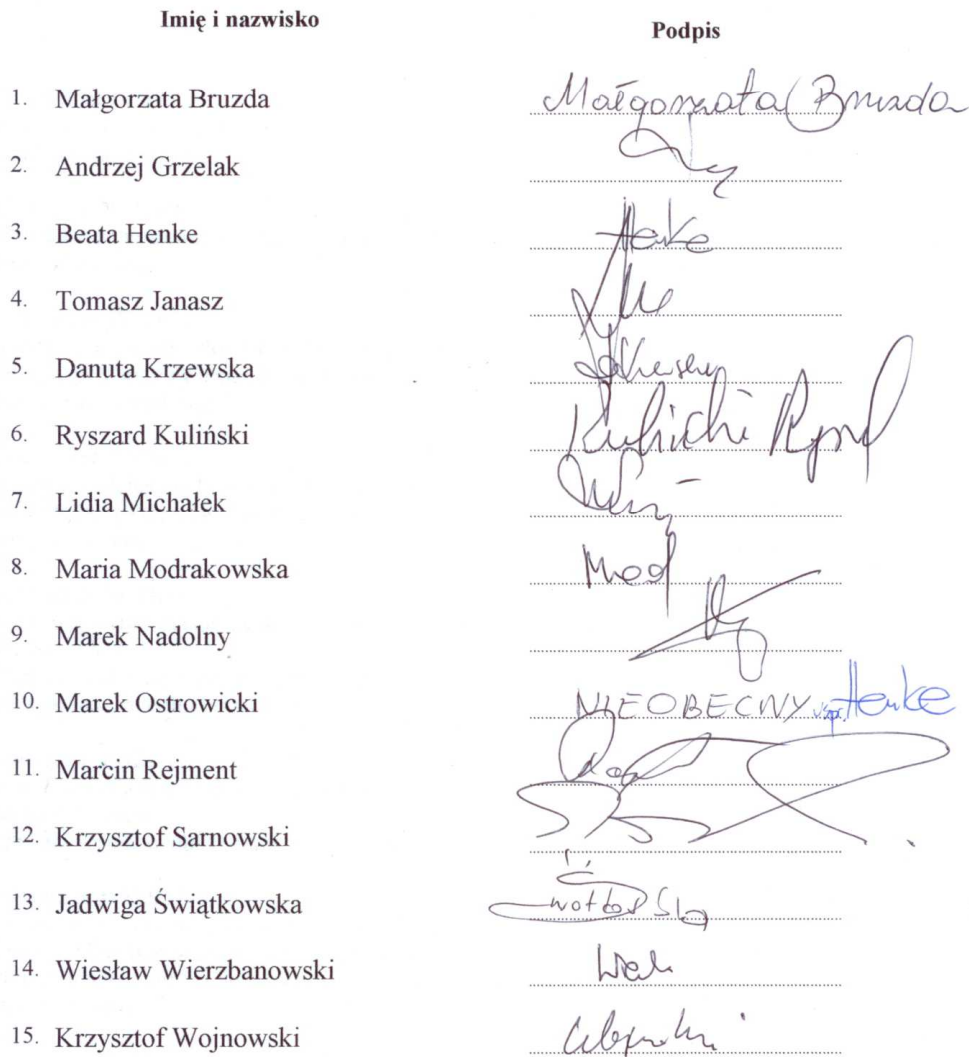 Imię i nazwisko Podpis
1. Małgorzata Bruzda Małgorzata Bruzda
2. Andrzej Grzelak
3. Beata Henke Henke
4. Tomasz Janasz
5. Danuta Krzewska
6. Ryszard Kuliński
7. Lidia Michałek
8. Maria Modrakowska Mod
9. Marek Nadolny
10. Marek Ostrowicki NIEOBECNY Henke
11. Marcin Rejment
12. Krzysztof Sarnowski
13. Jadwiga Świątkowska
14. Wiesław Wierzbanowski
15. Krzysztof Wojnowski